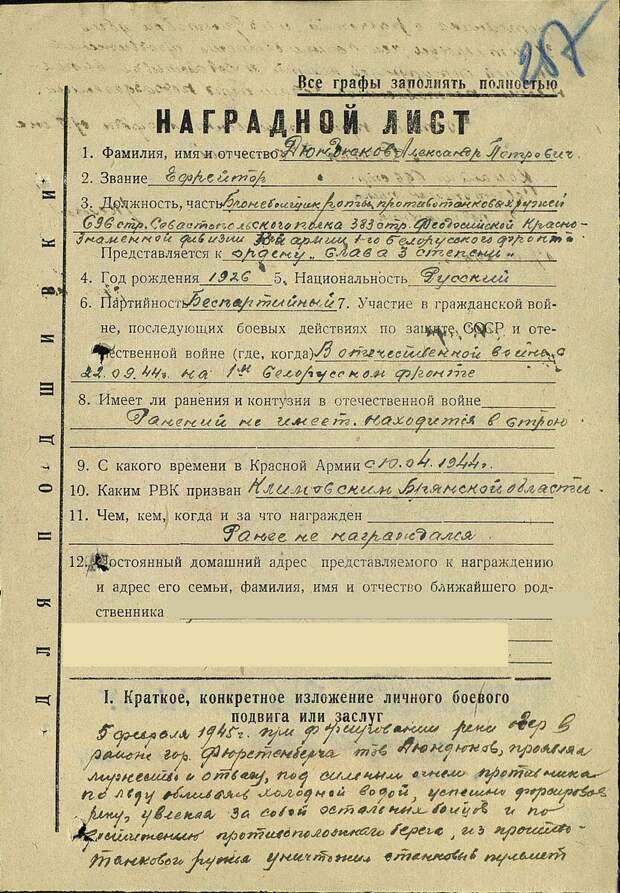 287
Все графы заполнять полностью
НАГРАДНОЙ ЛИСТ
1. Фамилия, имя и отчество Дюндюков Александр Петрович.
2. Звание Ефрейтор
3. Должность, часть Бронебойщик роты противотанковых ружей
696 стр. Севастопольского полка 383 стр. Феодосийской Красно-
знаменной дивизии 33й армии 1-го Белорусского фронта
Представляется к ордену „Слава 3 степени"
4. Год рождения 1926 5. Национальность Русский
6. Партийность Беспартийный 7. Участие в гражданской вой-
не, последующих боевых действиях по защите СССР и оте-
чественной войне (где, когда) В отечественной войне с
22.09.44г. на 1м Белорусском фронте
8. Имеет ли ранения и контузии в отечественной войне
Ранений не имеет. находится в строю
9. С какого времени в Красной Армии с 10.04.1944г.
10. Каким РВК призван Климовским Брянской области.
11. Чем, кем, когда и за что награжден
Ранее не награждался.
12. Постоянный домашний адрес представляемого к награждению
и адрес его семьи, фамилия, имя и отчество ближайшего род-
ственника
ДЛЯ ПОДШИВКИ
I. Краткое, конкретное изложение личного боевого
подвига или заслуг
5 февраля 1945г. при форсировании реки Одер в
районе гор. Фюрстенберга тов Дюндюков, проявляя
мужество и отвагу, под сильным огнем противника
по льду обливаяв холодной водой, успешно форсировав
реку, увлекая за собой остальных бойцов и по
достижению противоположного берега, из противо-
танкового ружья уничтожил станковый пулемет